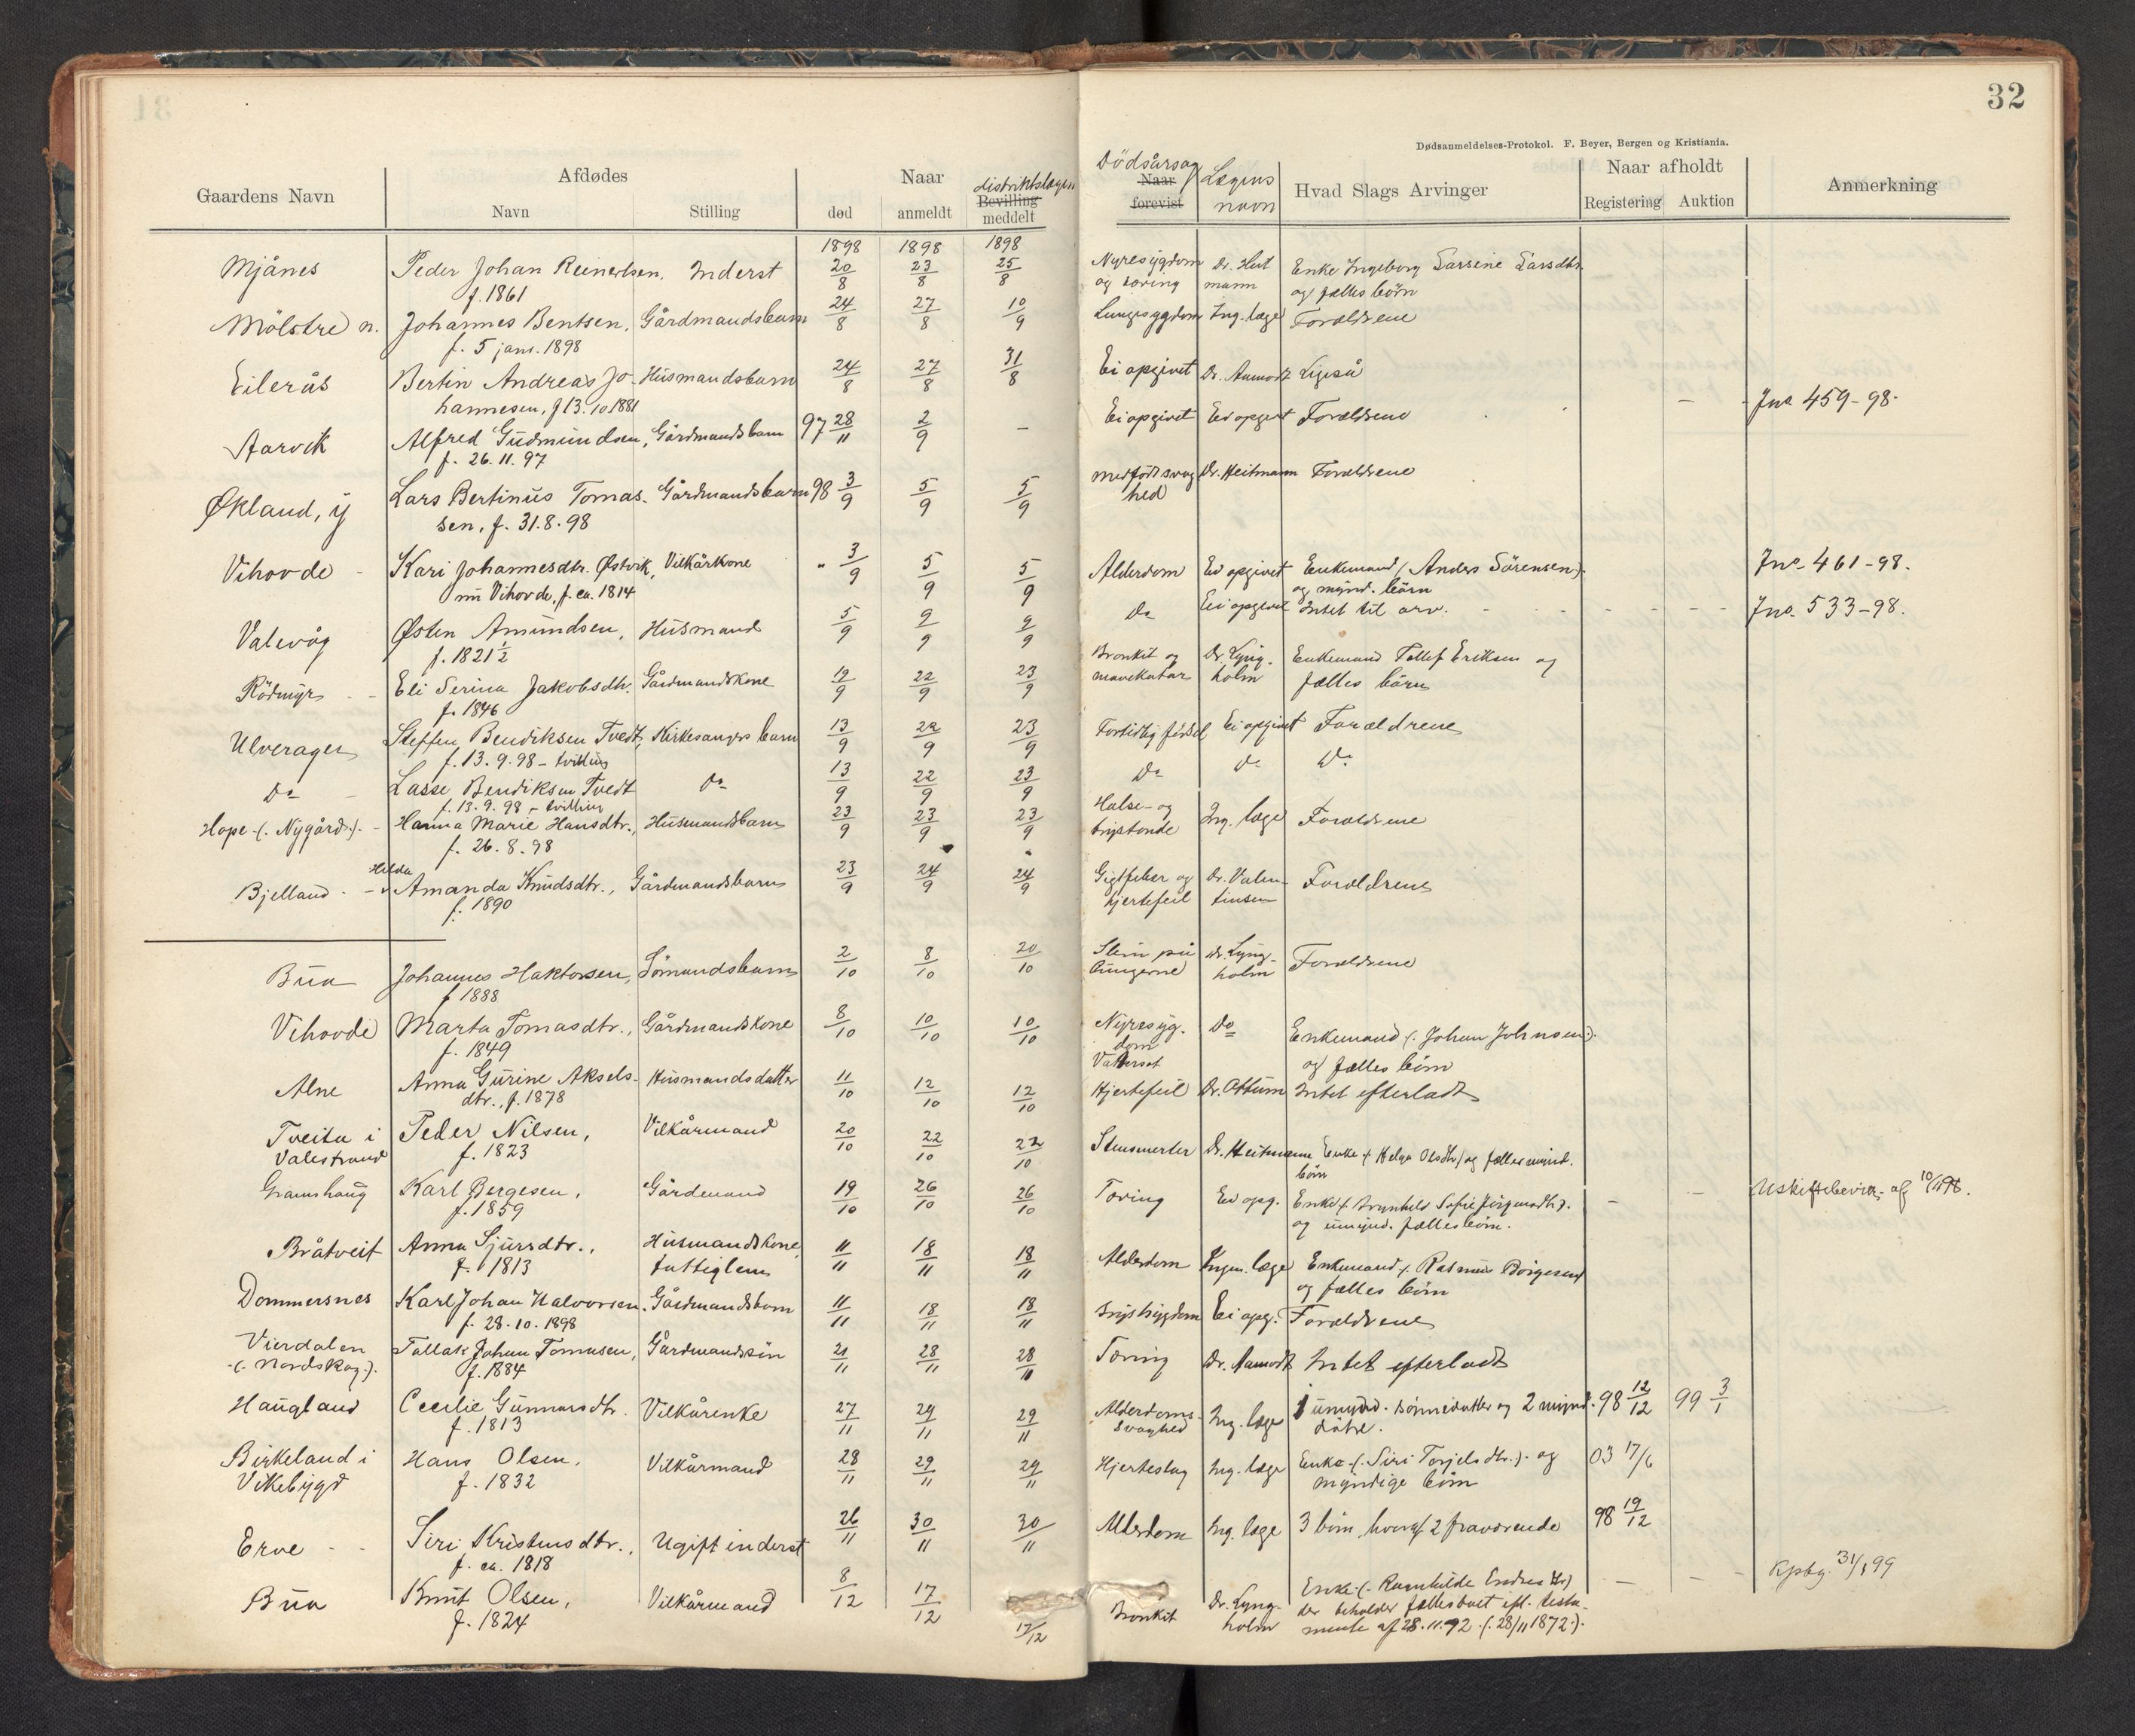 32
Dødsanmeldelses-Protokol. F. Beyer, Bergen og Kristiania.
Gaardens Navn Afdødes Naar Dödsårsag Lægens navn Hvad Slags Arvinger Naar afholdt Anmerkning
Navn Stilling død anmeldt distriktslægen Bevilling meddelt Naar forevist Registering Auktion
1898 1898 1898
Mjånes Peder Johan Reinertsen, Inderst 20/8 23/8 25/8 Nyresygdom Dr. Heit Enke Ingeborg Larsdtr.
f. 1861 og tæring mann og fælles børn
Mölstre n. Johannes Bentsen, Gårdmandsbarn 24/8 27/8 10/9 Lungesygdom Ing. læge Forældrene
f. 5 jans. 1898
Eilerås Bertin Andreas Jo- Husmandsbarn 24/8 27/8 31/8 Ei opgivet Dr. Aamodt Ligeså
hannesen, f 13.10 1881
Aarvik Alfred Gudmundsen, Gårdmandsbarn 97 28/11 2/9 – Ei opgivet Ei opgivet Forældrene – Jno 459-98.
f. 26.11.97
Økland, y Lars Bertinus Tomas- Gårdmandsbarn 98 3/9 5/9 5/9 Medfødt svag- Dr. Heitmann Forældrene
sen, f. 31.8.98 hed
Vihovde Kari Johannesdtr. Østvik, Vilkårkone " 3/9 5/9 5/9 Alderdom Ei opgivet Enkemand (Anders Sörensen) Jno. 461-98.
nu Vihovde, f. ca. 1814 og mynd. børn
Valevåg Østen Amundsen, Husmand 5/9 9/9 9/9 Do Ei opgivet Intet til arv. Jno. 533-98.
f. 1821 1/2
Rödmyr Eli Serina Jakobsdtr. Gårdmandskone 12/9 22/9 23/9 Bronkit og Dr. Lyng- Enkemand Tollef Eriksen og
f. 1846 mavekatar holm fælles børn
Ulverager Steffen Bendiksen Tvedt, Kirkesangers barn 13/9 22/9 23/9 Fortidlig fødsel Ei opgivet Forældrene
f. 13.9.98 – tvilling
Do Lasse Bendiksen Tvedt Do 13/9 22/9 23/9 Do Do Do
f. 13.9.98 – tvilling
Hope (: Nygård :) Hanna Marie Hansdtr., Husmandsbarn 23/9 23/9 23/9 Halse- og Ing. læge Forældrene
f. 26.8.98 brystonde
Hilda
Bjelland Amanda Knudsdtr., Gårdmandsbarn 23/9 24/9 24/9 Gigtfeber og Dr. Valen- Forældrene
f. 1890 hjertefeil tinsen
Bua Johannes Haktorsen, Sömandsbarn 2/10 8/10 20/10 Slim på Dr. Lyng- Forældrene
f 1888 lungerne holm
Vihovde Marta Tomasdtr., Gårdmandskone 8/10 10/10 10/10 Nyresyg- Do Enkemand (: Johan Johnsen :)
f. 1849 dom og fælles børn
Vattersot
Alne Anna Gurine Aksels- Husmandsdatter 11/10 12/10 12/10 Hjertefeil Dr. Ottum Intet efterladt
dtr., f. 1878
Tveita i Peder Nilsen, Vilkårmand 20/10 22/10 22/10 Stensmerter Dr. Heitmann Enke (Helga Olsdtr) og fælles mynd.
Valestrand f. 1823 børn
Gramshaug Karl Børgesen, Gårdmand 19/10 26/10 26/10 Tæring Ei opg. Enke (: Brynhild Sofie Jörgensdtr). – – Uskiftebevil. af 10/11 98.
f. 1859 og umynd. fælles børn.
Bråtveit Anna Sjursdtr., Husmandskone, 11/11 18/11 18/11 Alderdom Ingen læge Enkemand (: Rasmus Börgesen)
f. 1813 fattiglem og fælles børn
Dommersnes Karl Johan Halvorsen, Gårdmandsbarn 11/11 18/11 18/11 Brystsygdom Ei opg. Forældrene
f. 28.10.1898
Vierdalen Tallak Johan Tomasen, Gårdmandssön 21/11 28/11 28/11 Tæring Dr. Aamodt Intet efterladt
(: Nordskog :). f. 1884
Haugland Cecilie Gunnarsdtr. Vilkårenke 27/11 29/11 29/11 Alderdoms- Ing. læge 1 umynd. sønnedatter og 2 mynd. 98 12/12 99 3/1
f. 1813 svaghed døtre.
Birkeland i Hans Olsen, Vilkårmand 28/11 29/11 29/11 Hjerteslag Ing. læge Enke (: Siri Torjelsdtr. :) og 03 17/6
Vikebygd f. 1832 myndige børn
Erve Siri Kristensdtr., Ugift inderst 26/11 30/11 30/11 Alderdom Ing. læge 3 børn, hvoraf 2 fraværende 98 19/12
f. ca. 1818
Bua Knut Olsen, Vilkårmand 8/12 17/12 17/12 Bronkit Dr. Lyng- Enke (: Ramhilde Endresdtr) – – Kpbg. 31/1 99
f. 1824 holm der beholder fællesboet ifl. testa-
mente af 28.11.92 (: 28/11 1872 :).